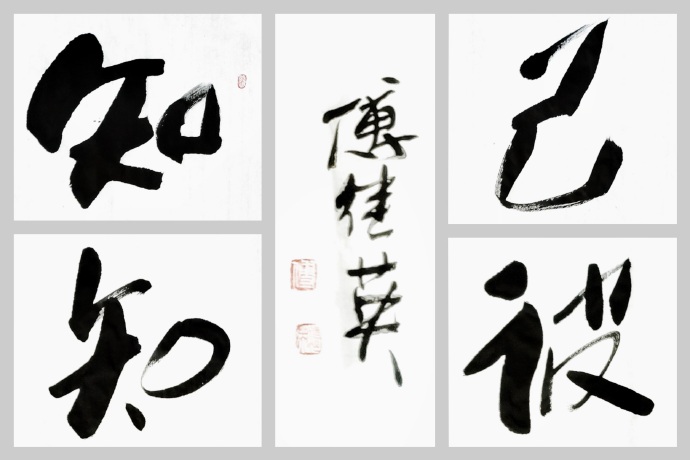 知己
知彼
傅佳英